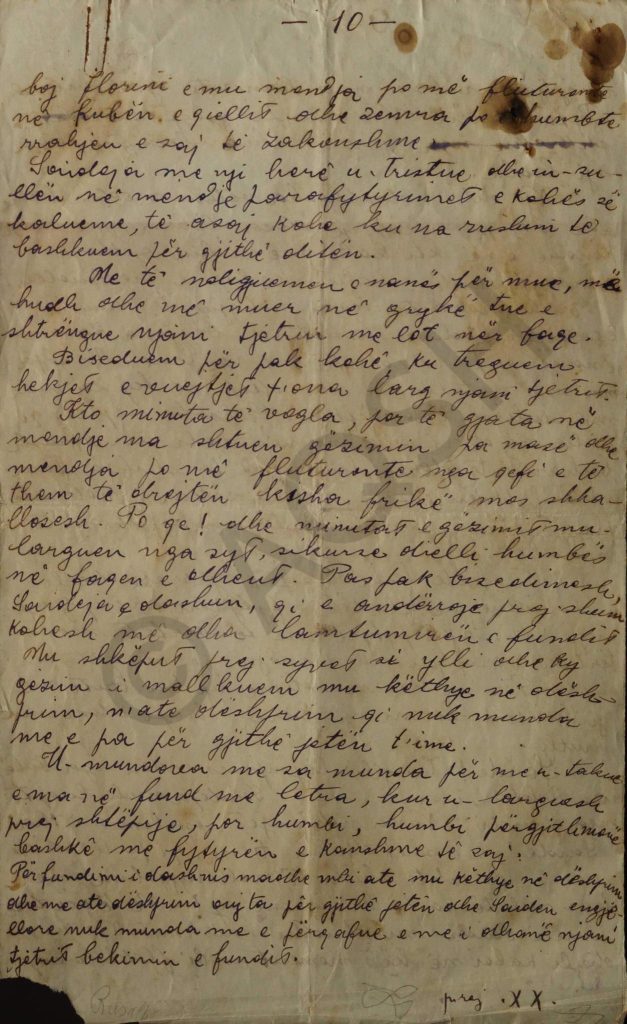 — 10 —
boj florini e mu mendja po më fluturonte
në kubën e qiellit dhe zemra po humbte
rrahjen e saj të zakonshme
Saideja me nji herë u-tristue dhe iu-su-
llën në mendje parafytyrimet e kohës së
kalueme, të asaj kohe ku na rrishim të
bashkuem për gjithë ditën.
Me të ndigjuemen e nanës për mue, më
hudh dhe më muer në grykë tue e
shtrëngue njani tjetrin me lot nër faqe.
Biseduem për pak kohë, ku treguem
hekjet e vuejtjet t'ona larg njani tjetrit.
Kto minuta të vogla, por të gjata në
mendje ma shtuen gëzimin pa masë dhe
mendja po më fluturonte nga qefi e të
them të drejtën kisha frikë mos shka-
llosesh. Po qe! dhe minutat e gëzimit mu-
larguen nga syt, sikurse dielli humbës
në faqen e dheut. Pas pak bisedimesh,
Saideja e dashun, qi e andërroje prej shum
kohësh më dha lamtumirën e fundit
Mu shkëput prej syvet si ylli dhe ky
gëzim i mallkuem mu këthye në dësh-
prim, n'ate dëshprim qi nuk munda
me e pa për gjithë jetën t'ime.
U-mundova me sa munda për me u-takue
e ma në fund me letra, kur u-largues
prej shtëpije, por humbi, humbi përgjithmonë
bashkë me fytyrën e kandshme të saj.
Përfundimi i dashnis madhe mbi atë mu këthye në dëshprim
dhe me ate dëshprim vujta për gjithë jetën dhe Saiden engjë-
llore nuk munda me e përqafue e me i dhanë njani
tjetrit bekimin e fundit.
prej .XX.